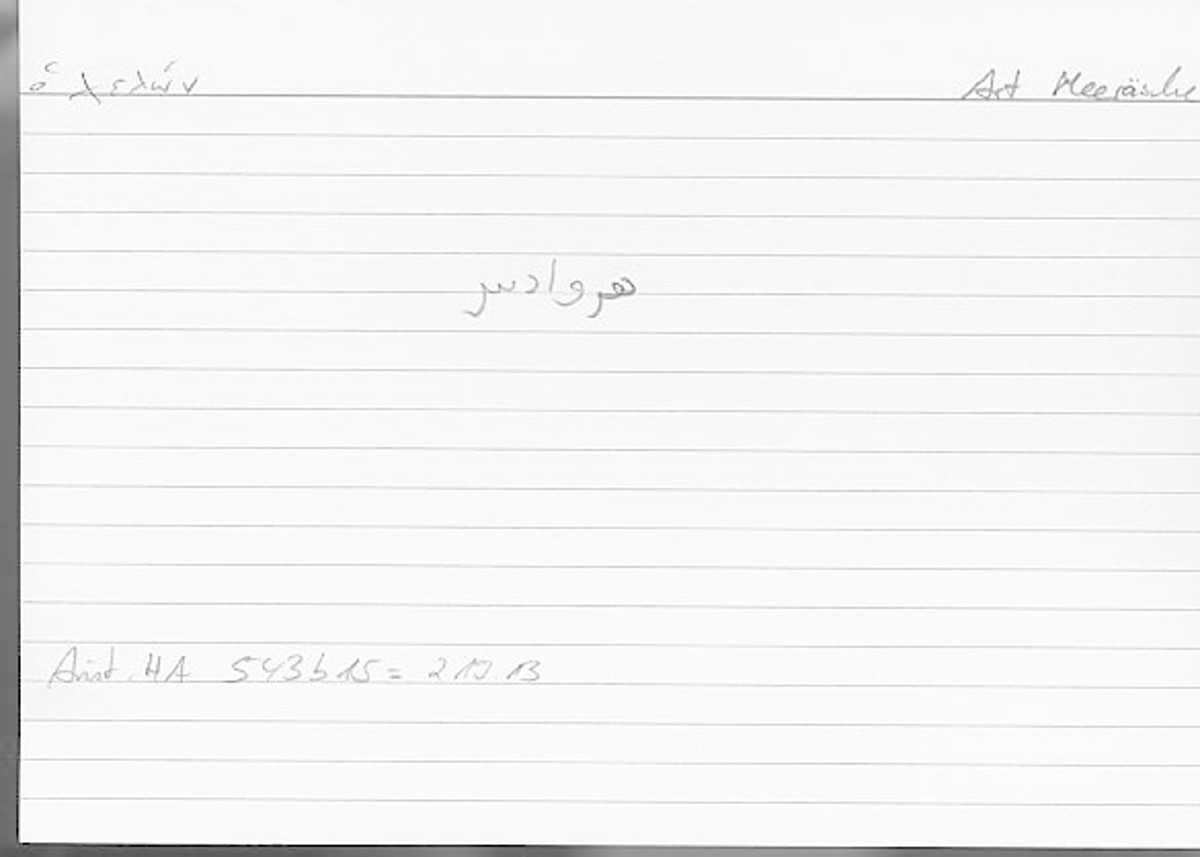 ὁ χελών Art Meeräsche
هر وادس
Arist. HA 543b15 = 219.13